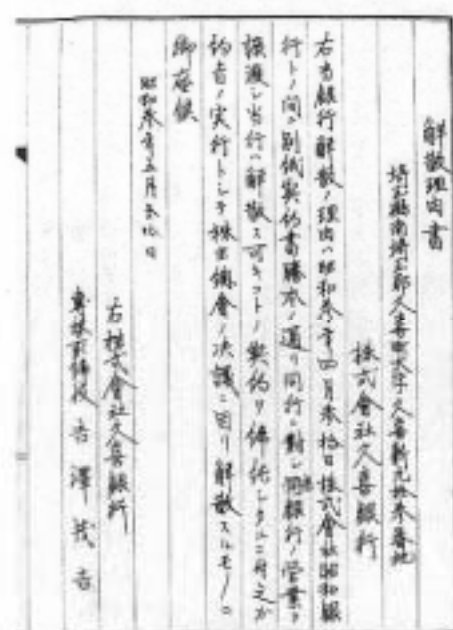 解散理由書
埼玉縣南埼玉郡久喜町大字久喜新 番地
株式會社久喜銀行
右当銀行解散ノ理由ハ昭和参年四月参拾日株式會社昭和銀
行トノ間ニ別紙契約書謄本ノ通リ同行ニ対シ同銀行ノ営業ヲ
譲渡シ当行ハ解散スヘキコトノ契約ヲ締結シタルニ付之カ
約旨ノ実行トシテ株主總會ノ決議ニ因リ解散スルモノニ
御座候
昭和参年五月 日
右株式會社久喜銀行
専務取締役 吉澤茂吉